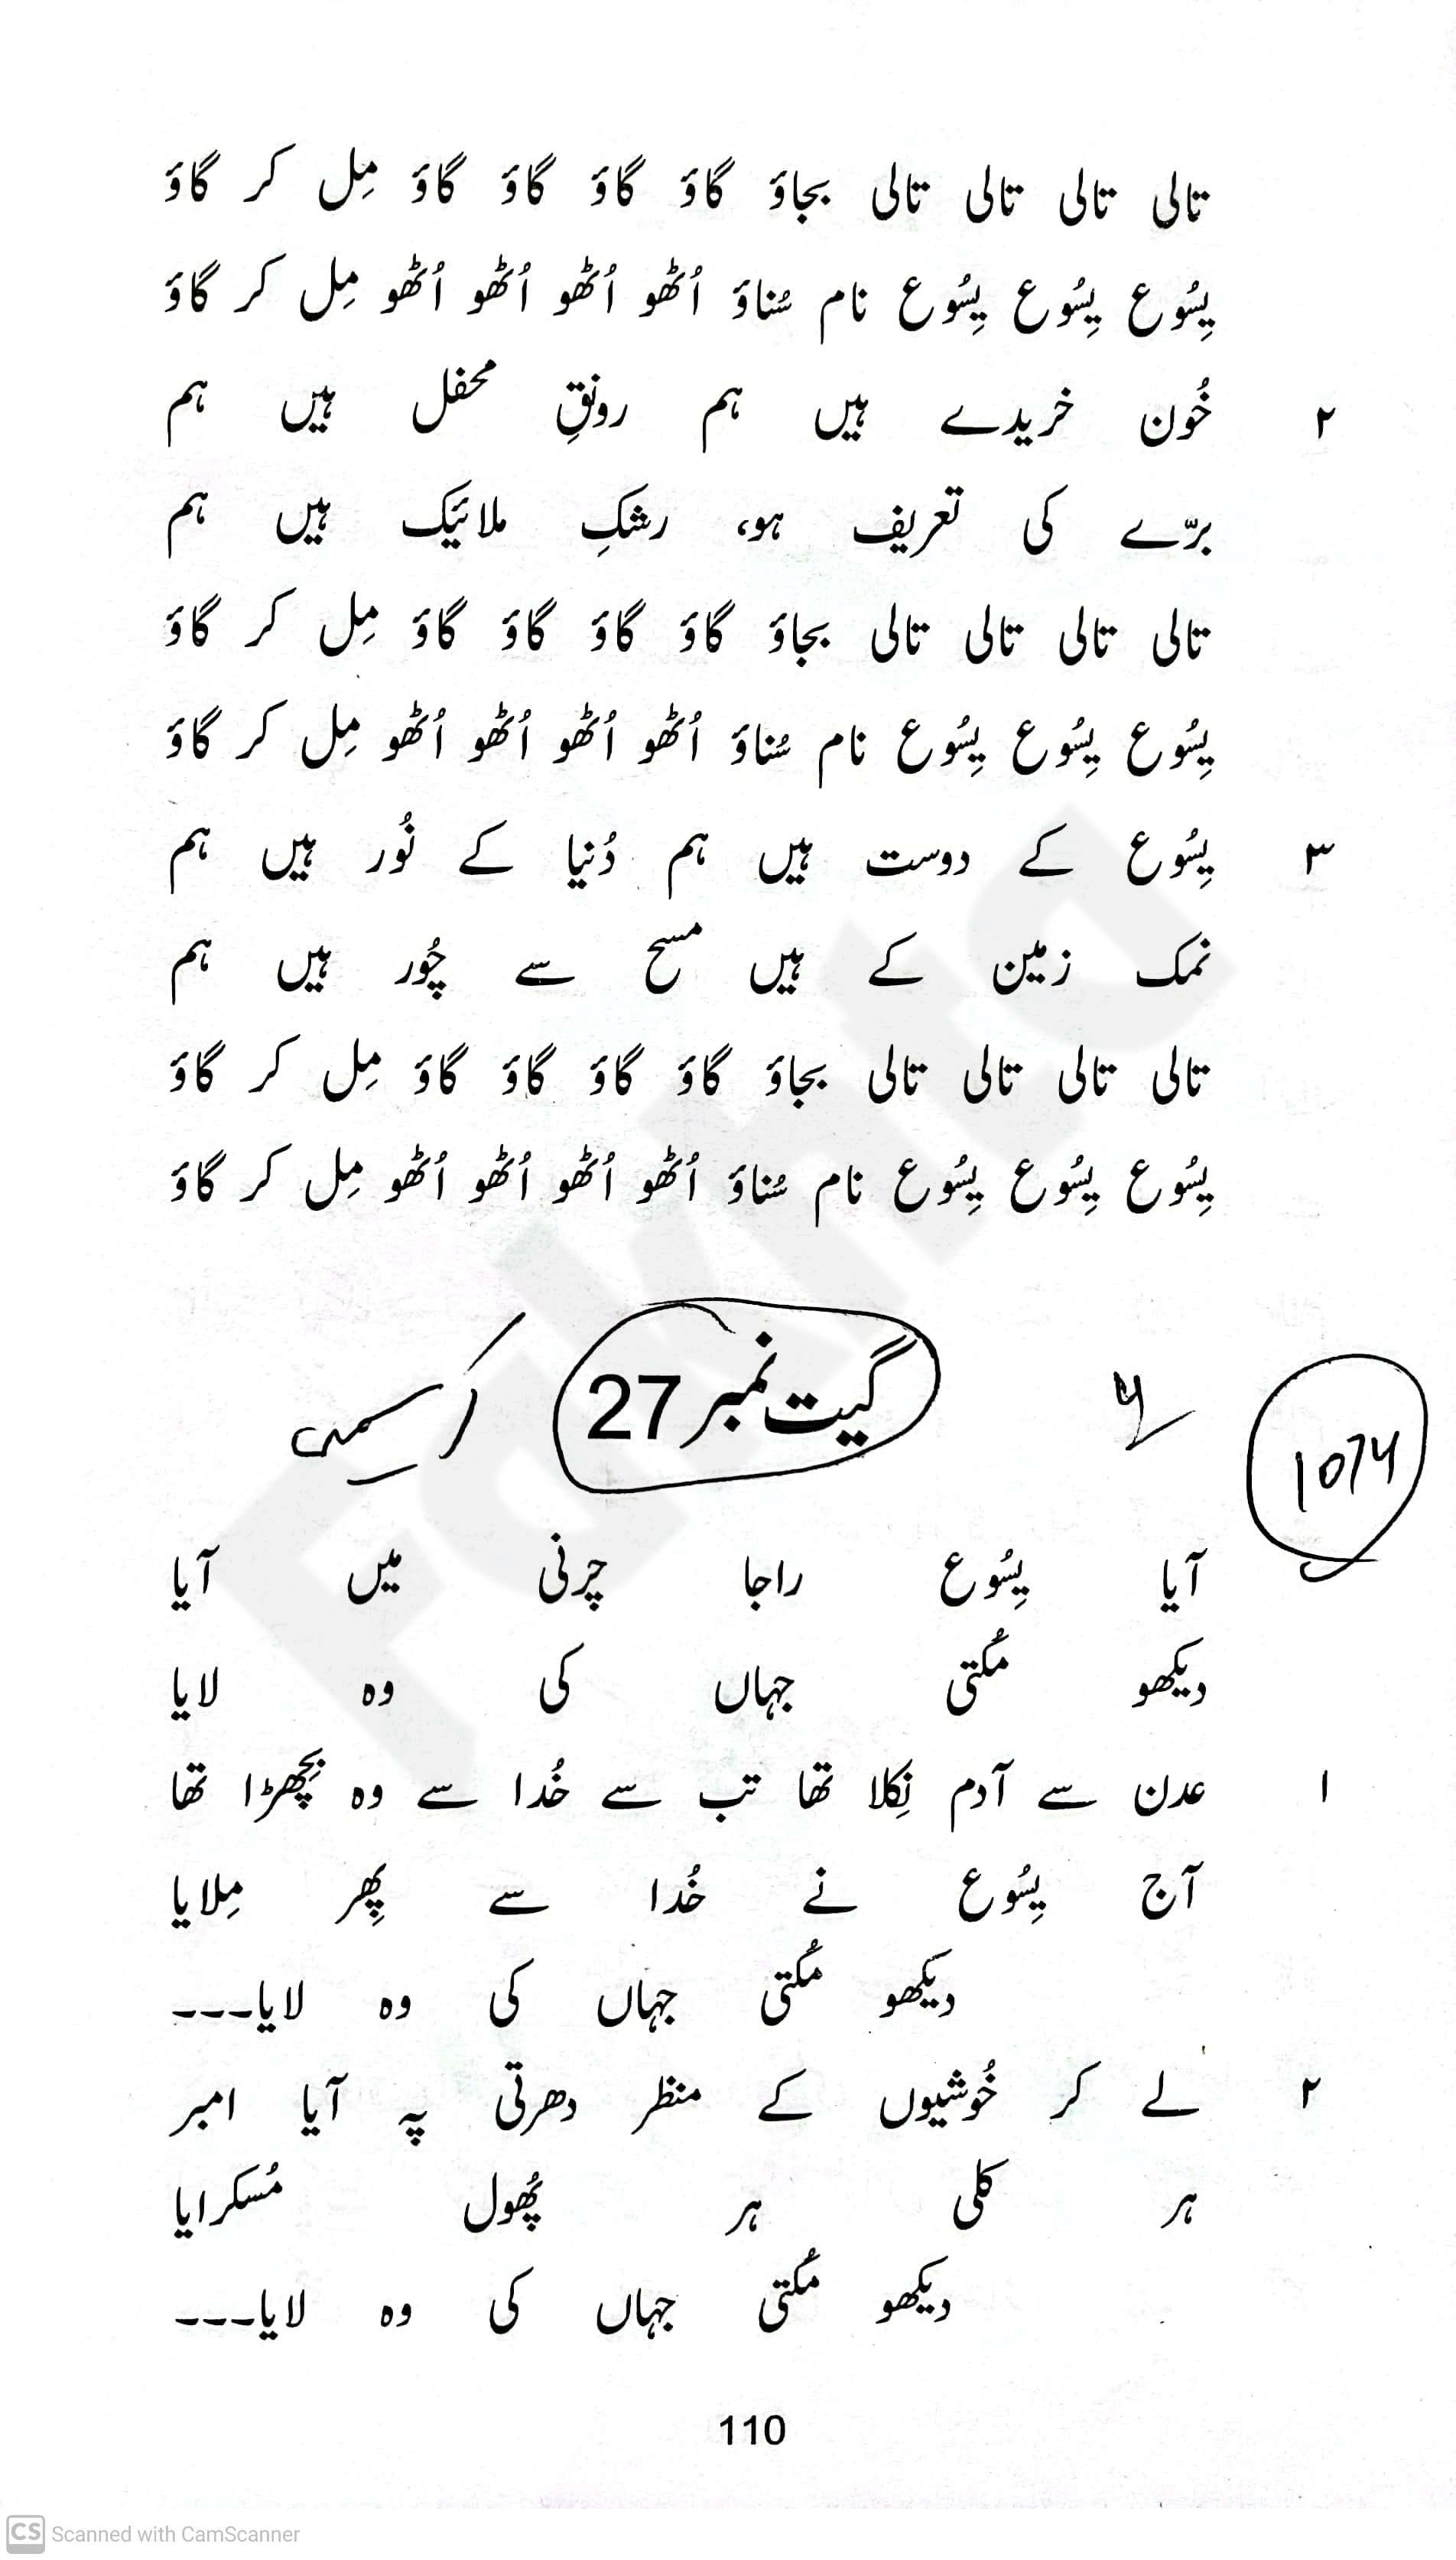 تالی تالی تالی تالی بجاؤ گاؤ گاؤ گاؤ گاؤ مِل کر گاؤ
یِسُوع یِسُوع یِسُوع نام سُناؤ اُٹھو اُٹھو اُٹھو اُٹھو مِل کر گاؤ
۲ خُون خریدے ہیں ہم رونقِ محفل ہیں ہم
برّے کی تعریف ہو، رشکِ ملائیک ہیں ہم
تالی تالی تالی تالی بجاؤ گاؤ گاؤ گاؤ گاؤ مِل کر گاؤ
یِسُوع یِسُوع یِسُوع نام سُناؤ اُٹھو اُٹھو اُٹھو اُٹھو مِل کر گاؤ
۳ یِسُوع کے دوست ہیں ہم دُنیا کے نُور ہیں ہم
نمک زمین کے ہیں مسح سے چُور ہیں ہم
تالی تالی تالی تالی بجاؤ گاؤ گاؤ گاؤ گاؤ مِل کر گاؤ
یِسُوع یِسُوع یِسُوع نام سُناؤ اُٹھو اُٹھو اُٹھو اُٹھو مِل کر گاؤ
گیت نمبر 27
1074
آیا یِسُوع راجا چرنی میں آیا
دیکھو مُکتی جہاں کی وہ لایا
۱ عدن سے آدم نِکلا تھا تب سے خُدا سے وہ بِچھڑا تھا
آج یِسُوع نے خُدا سے پِھر مِلایا
دیکھو مُکتی جہاں کی وہ لایا۔۔۔
۲ لے کر خُوشیوں کے منظر دھرتی پہ آیا امبر
ہر کلی ہر پُھول مُسکرایا
دیکھو مُکتی جہاں کی وہ لایا۔۔۔
110
Fakhta
CS Scanned with CamScanner